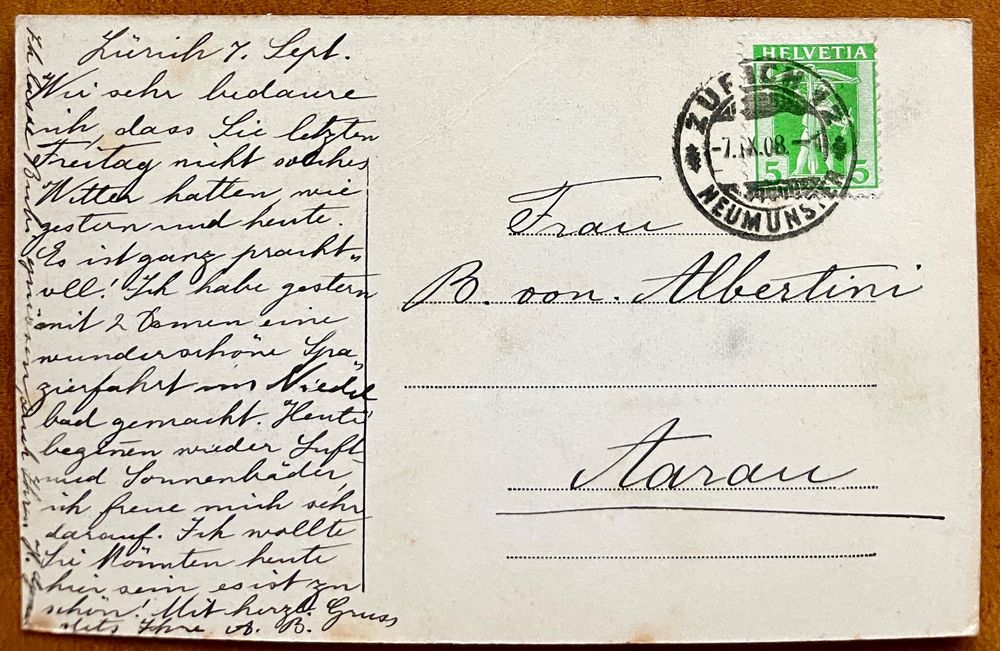 Zürich 7. Sept.
Wie sehr bedaure
ich, dass Sie letzten
Freitag nicht solches
Wetter hatten wie
gestern und heute.
Es ist ganz pracht-
voll! Ich habe gestern
mit 2 Damen eine
wunderschöne Spa-
zierfahrt ins Niedel
bad gemacht. Heute
beginnen wieder Luft-
und Sonnenbäder,
ich freue mich sehr
darauf. Ich wollte
Sie könnten heute
hier sein es ist zu
schön! Mit herzl. Gruss
stets Ihre A. B.
HELVETIA
5 5
ZÜRICH 12
-7.IX.08.-
NEUMÜNSTER
Frau
B. von. Albertini
Aarau